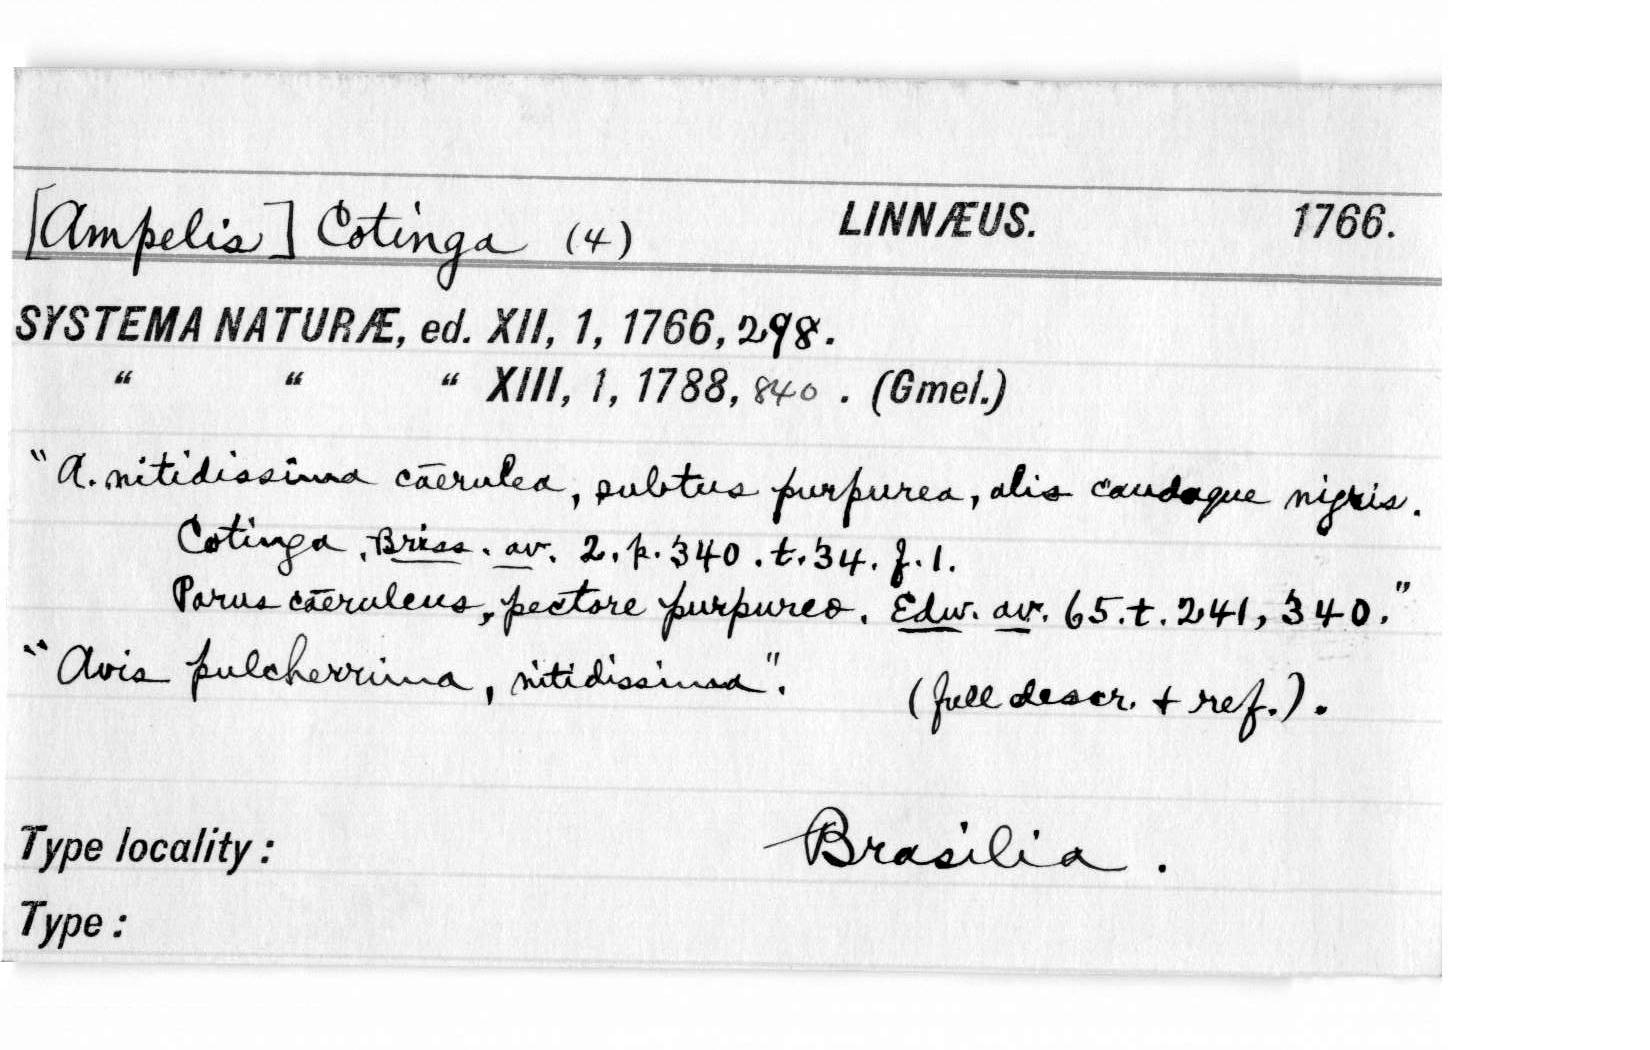 [Ampelis] Cotinga (4) LINNÆUS. 1766.
SYSTEMA NATURÆ, ed. XII, 1, 1766, 298.
“ “ “ XIII, 1, 1788, 840. (Gmel.)
"A. nitidissima cāerulea, subtus purpurea, alis caudaque nigris.
Cotinga. Briss. av. 2. p. 340. t. 34. f. 1.
Parus cāeruleus, pectore purpureo. Edw. av. 65. t. 241, 340."
"Avis pulcherrima, nitidissima". (full descr. + ref.).
Type locality: Brasilia.
Type: